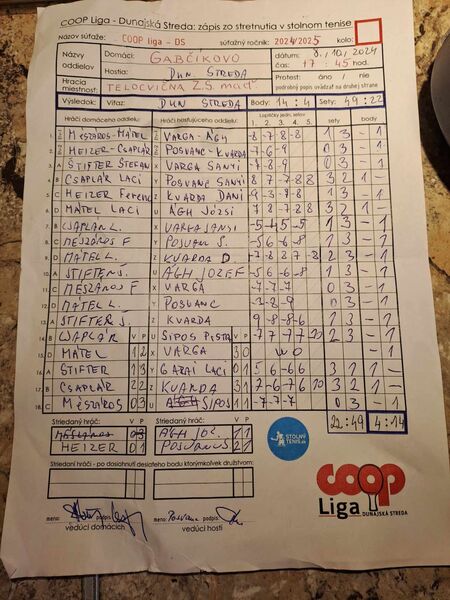 COOP Liga - Dunajská Streda: zápis zo stretnutia v stolnom tenise
Názov súťaže: COOP liga - DS súťažný ročník: 2024/2025 kolo:
Názvy oddielov Domáci: GABČÍKOVO dátum: 8./10./2024
Hostia: DUN. STREDA čas: 17 : 45 hod.
Hracia miestnosť: TELOCVIČŇA Z.Š. maď Protest: áno / nie podrobný popis uvádzať na druhej strane
Výsledok: Víťaz: DUN STREDA Body: 14 : 4 Sety: 49 : 22
Hráči domáceho oddielu: Hráči hosťujúceho oddielu: Loptičky jedn. hráčov sety body
1. 2. 3. 4. 5.
1. MESZAROS-MATEL VARGA-ÁGH -8 -7 8 -8 1 3 - 1
2. HEIZER-CSAPLÁR POSVANC-KVARDA -7 -6 -9 0 3 - 1
3. A ŠTIFTER ŠTEFAN X VARGA SANYI -7 -8 -9 0 3 - 1
4. B CSAPLÁR LACI Y POSVANC SANYI 8 7 -7 -8 8 3 2 1 -
5. C HEIZER Ferenc Z KVARDA DANI -9 -3 9 -8 1 3 - 1
6. D MATEL LACI U ÁGH JÓZSI 7 8 -7 -8 8 3 2 1 -
7. B CSAPLAR L. X VARGA SANYI -5 -4 5 -5 1 3 - 1
8. MESZÁROS F Y POSVANC S. -5 6 -6 -8 1 3 - 1
9. D MATEL L. Z KVARDA D 2 3 - 1
10. A STIFTER Š. U ÁGH JOZEF -5 6 -6 -8 1 3 - 1
11. C MESZÁROS F X VARGA -7 -7 -7 0 3 - 1
12. D MATEL L. Y POSVANC -3 -8 -9 0 3 - 1
13. A STIFTER Š. Z KVARDA 9 -8 -8 -6 1 3 - 1
14. B CSAPLÁR V P U SIPOS PISTA V P -7 7 -7 7 -10 2 3 - 1
15. D MATEL 1 2 X VARGA 3 0 WO - 1
16. A STIFTER 1 3 Y GAZAI LACI 0 1 5 -6 6 6 3 1 1 -
17. B CSAPLÁR 2 2 Z KVARDA 3 1 -7 -6 7 6 10 3 2 1 -
18. C MÉSZÁROS 0 3 U SIPOS 1 1 -7 -7 -7 0 3 - 1
22:49 4:14
Striedaný hráč: V P Striedaný hráč: V P
MÉSZÁROS 0 3 ÁGH JOŽ. 1 1
HEIZER 0 1 POSVANC S 2 1
STOLNÝ TENIS.sk
Striedaní hráči - po dosiahnutí desiateho bodu ktorýmkoľvek družstvom:
coop
Liga DUNAJSKÁ STREDA
meno: podpis: meno: Posvanc podpis:
vedúci domácich vedúci hostí